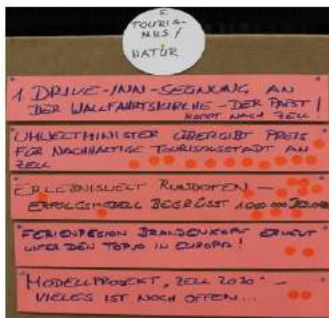 5.
TOURIS-
MUS /
NATUR
1. DRIVE-INN-SEGNUNG AN
DER WALLFAHRTSKIRCHE - DER PAPST
KOMMT NACH ZELL!
UMWELTMINISTER ÜBERGIBT PREIS
FÜR NACHHALTIGE TOURISMUSSTADT AN
ZELL
ERLEBNISWELT RUNDOFEN -
ERFOLGSMODELL BEGRÜSST 1.000.000
FERIENREGION BRANDENKOPF ERNEUT
UNTER DEN TOP 10 IN EUROPA!
MODELLPROJEKT „ZELL 2030" -
VIELES IST NOCH OFFEN...